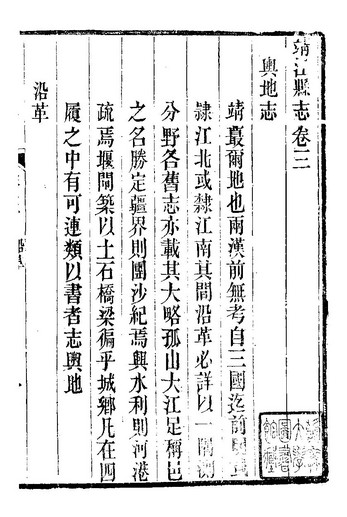 靖江縣志卷三
輿地志
靖蕞爾地也兩漢前無考自三國迄前明或
隸江北或隸江南其間沿革必詳以一隅測
分野各舊志亦載其大略孤山大江足稱邑
之名勝定疆界則團沙紀焉興水利則河港
疏焉堰閘築以土石橋梁徧乎城鄉凡在四
履之中有可連類以書者志輿地
沿革